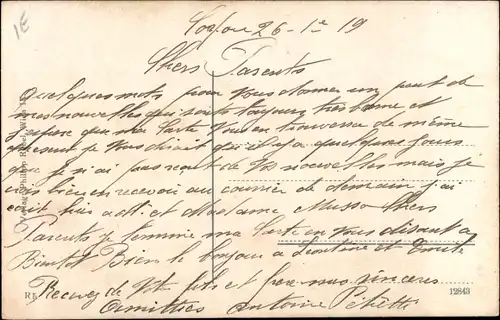 1E
26-1e 19
Chers Parents
Quelques mots pour vous donner un peut de
mes nouvelles qui sont toujours très bonne et
j'espère que ma Carte vous en trouvera de même
présent je vous dirait qu'il y a quelques jours
que je n'ai pas reçut de vos nouvelles mais je
crois bien en recevoir au courrier de demain j'ai
écrit hier a et Madame Musso Chers
Parents je termine ma Carte en vous disant a
Bientôt Bien le bonjour a Leontine et
Recevez de Vtre fils et frère mes sincères
Amitiées Antoine
R 12843